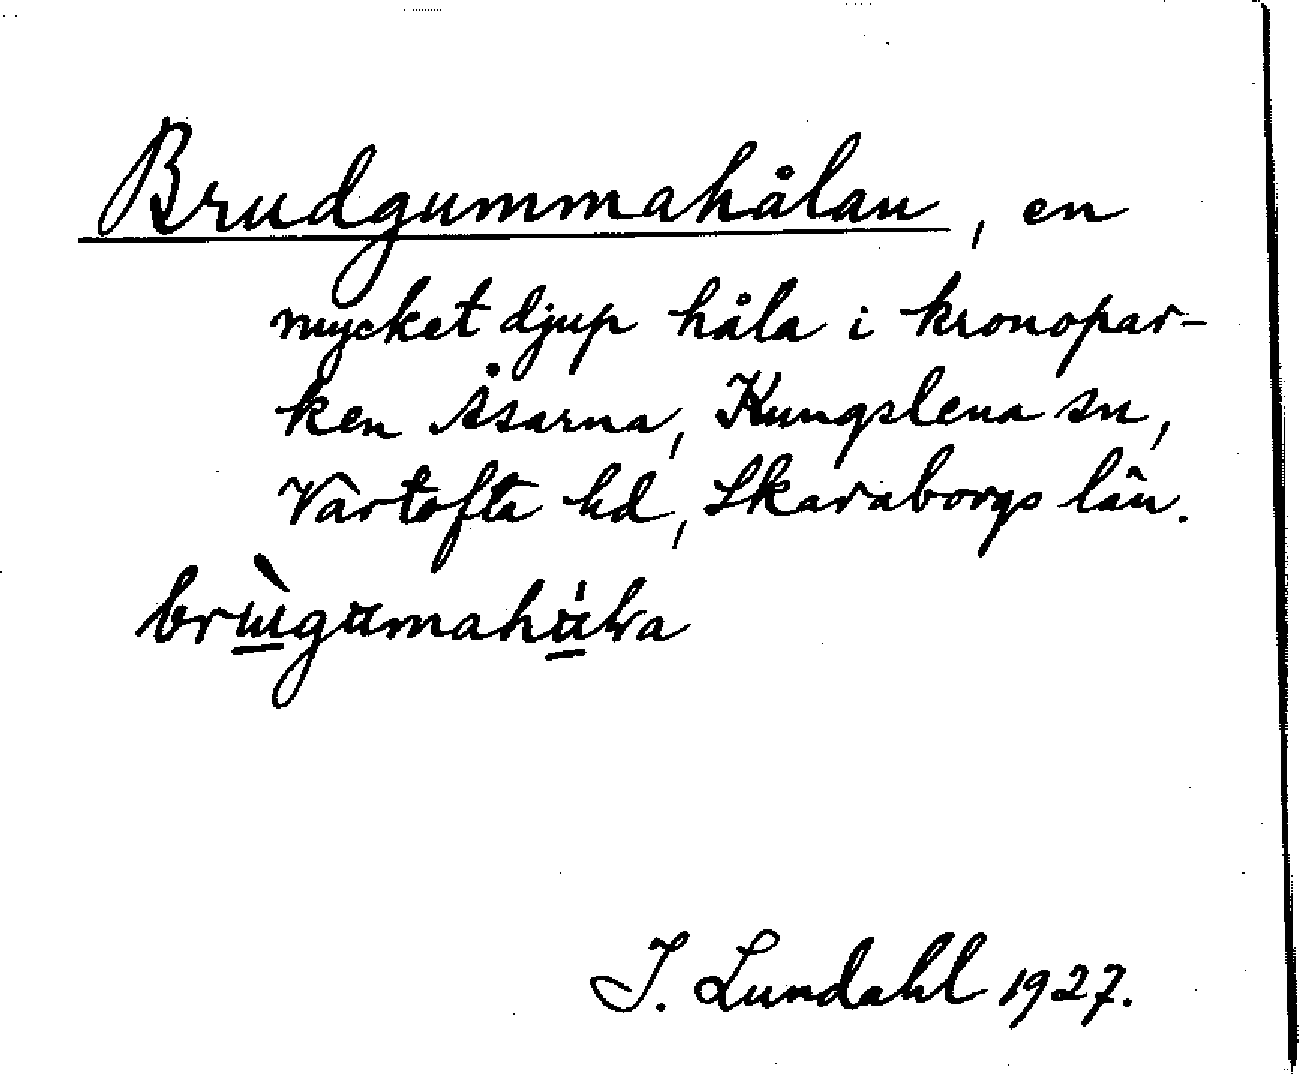 Brudgummahålan, en
mycket djup håla i kronopar-
ken Åsarna, Kungslena sn,
Vartofta hd, Skaraborgs län.
J. Lundahl 1927.